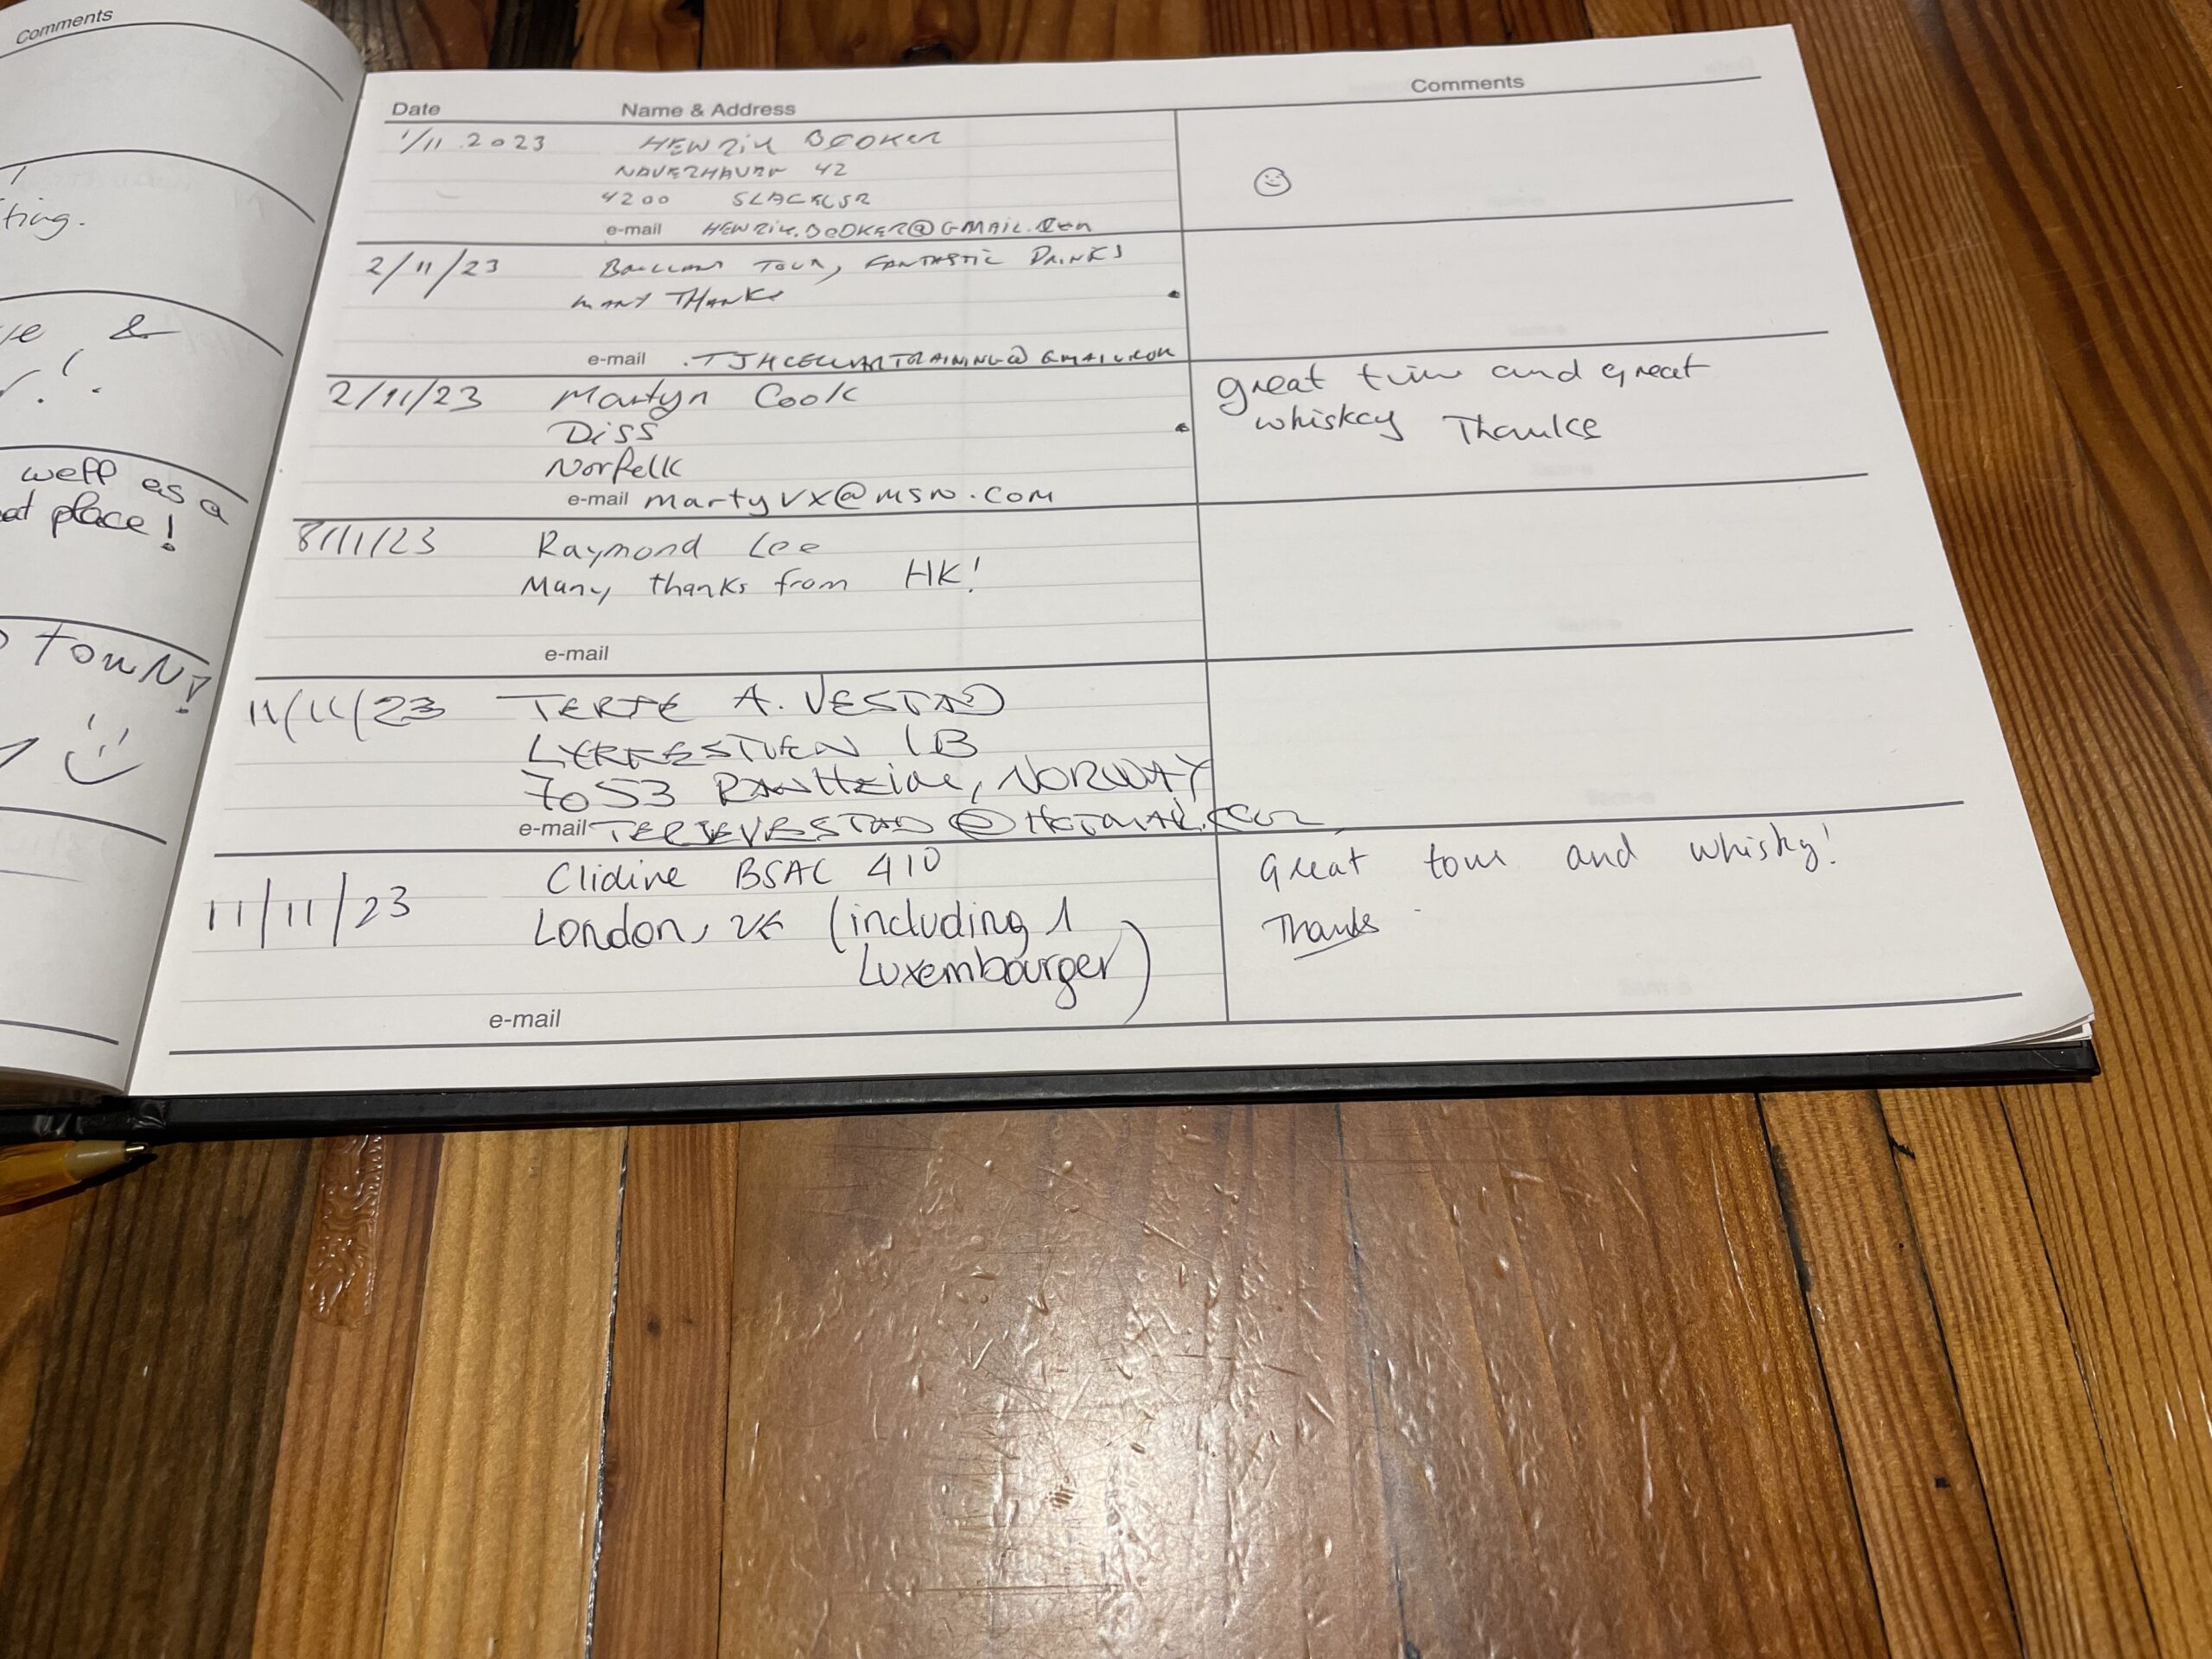 Comments
ting.
&
well as a
place!
TOWN!
Date Name & Address Comments
1/11 2023 HENRIK BOOKER
42
4200
e-mail HENRIK.BOOKER@GMAIL.COM
2/11/23 BRILLIANT TOUR, FANTASTIC DRINKS
MANY THANKS
e-mail TJHCELLARTRAINING@GMAIL.COM
2/11/23 Martyn Cook
Diss
Norfolk
e-mail martyvx@msn.com
great time and great
whiskey Thanks
8/11/23 Raymond Lee
Many thanks from HK!
e-mail
11/11/23 TERJE A. VESTAD
1B
7053 RANHEIM, NORWAY
e-mail TERJEVESTAD@HOTMAIL.COM
11/11/23 Clidive BSAC 410
London, UK (including 1
Luxembourger)
e-mail
Great tour and whisky!
Thanks